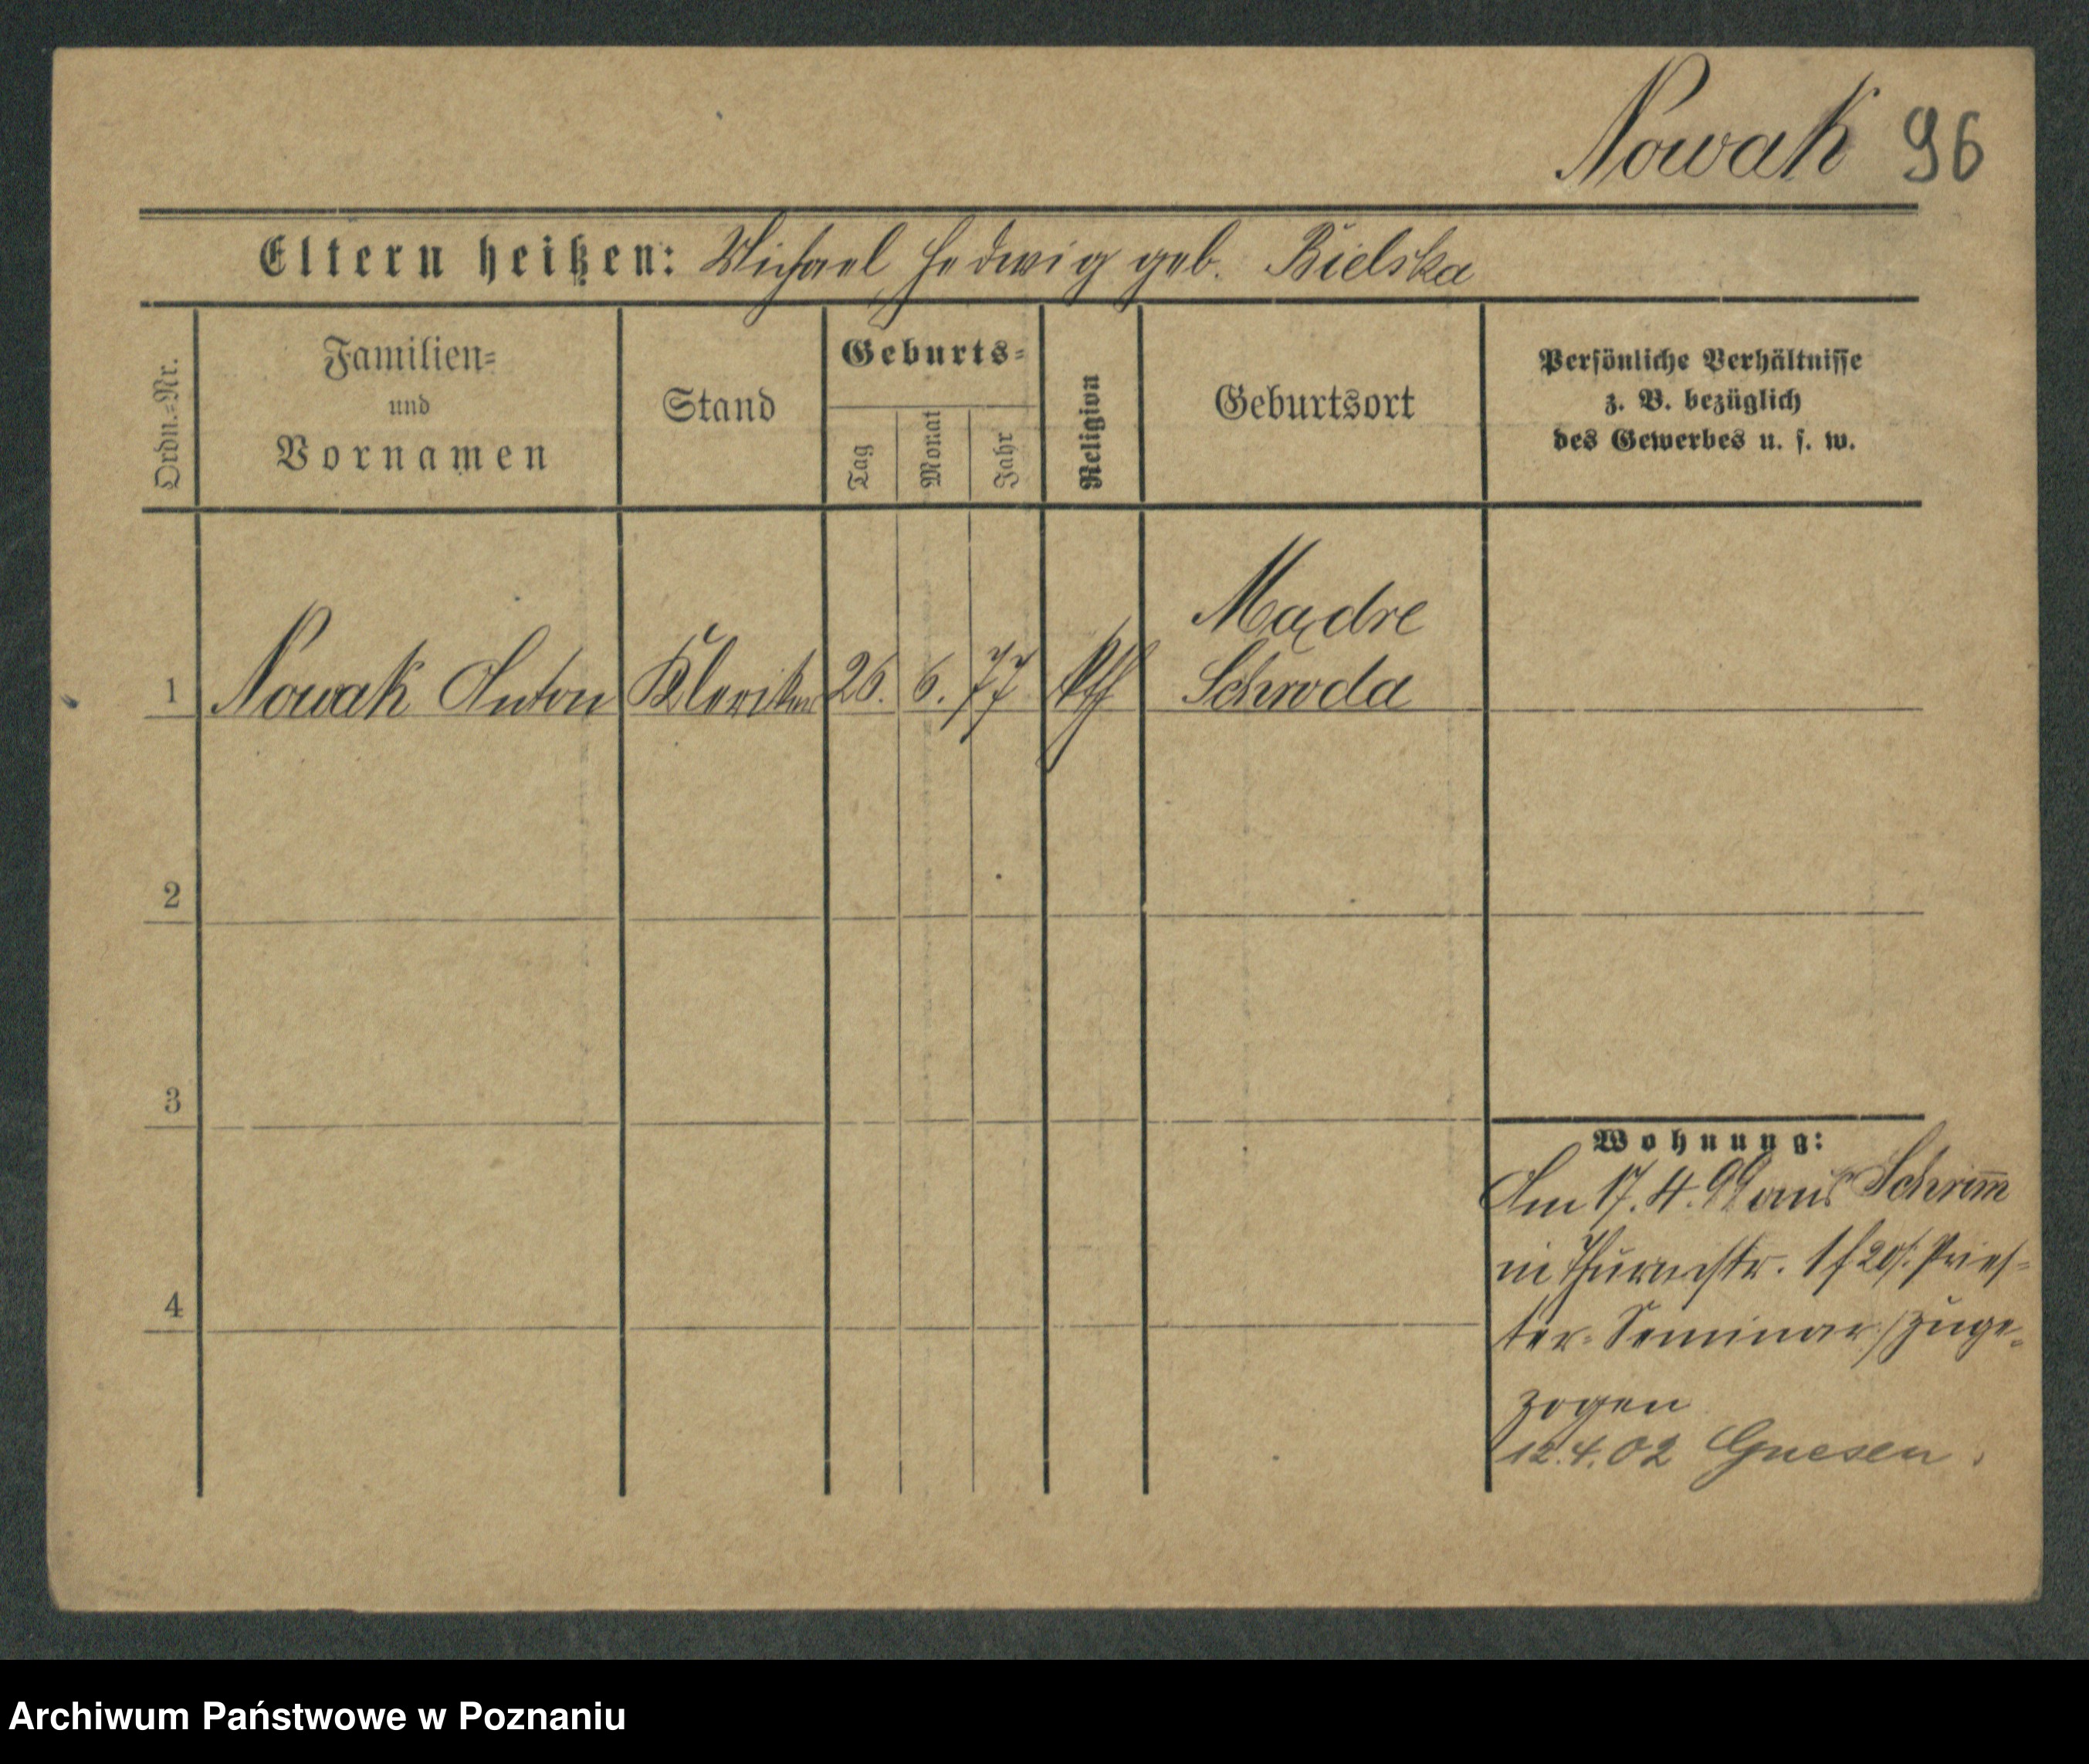 Nowak 96
Eltern heißen: Michael Hedwig geb. Bielska
Ordn.=Nr.
Familien=
und
Vornamen
Stand
Geburts=
Tag
Monat
Jahr
Religion
Geburtsort
Persönliche Verhältnisse
z. B. bezüglich
des Gewerbes u. s. w.
Madre
1 Nowak Anton Kleriker 26. 6. 77 kth Schroda
2
3
Wohnung:
Am 17. 4. 99 aus Schrim̅
in Thurmstr. 1 Pries-
4
ter-Seminar/zuge-
zogen
12.4.02 Gnesen.
Archiwum Państwowe w Poznaniu